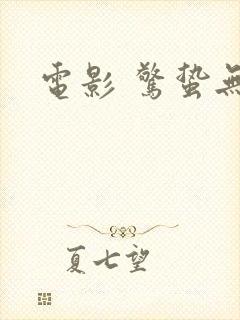 電影 驚蟄無
夏七望